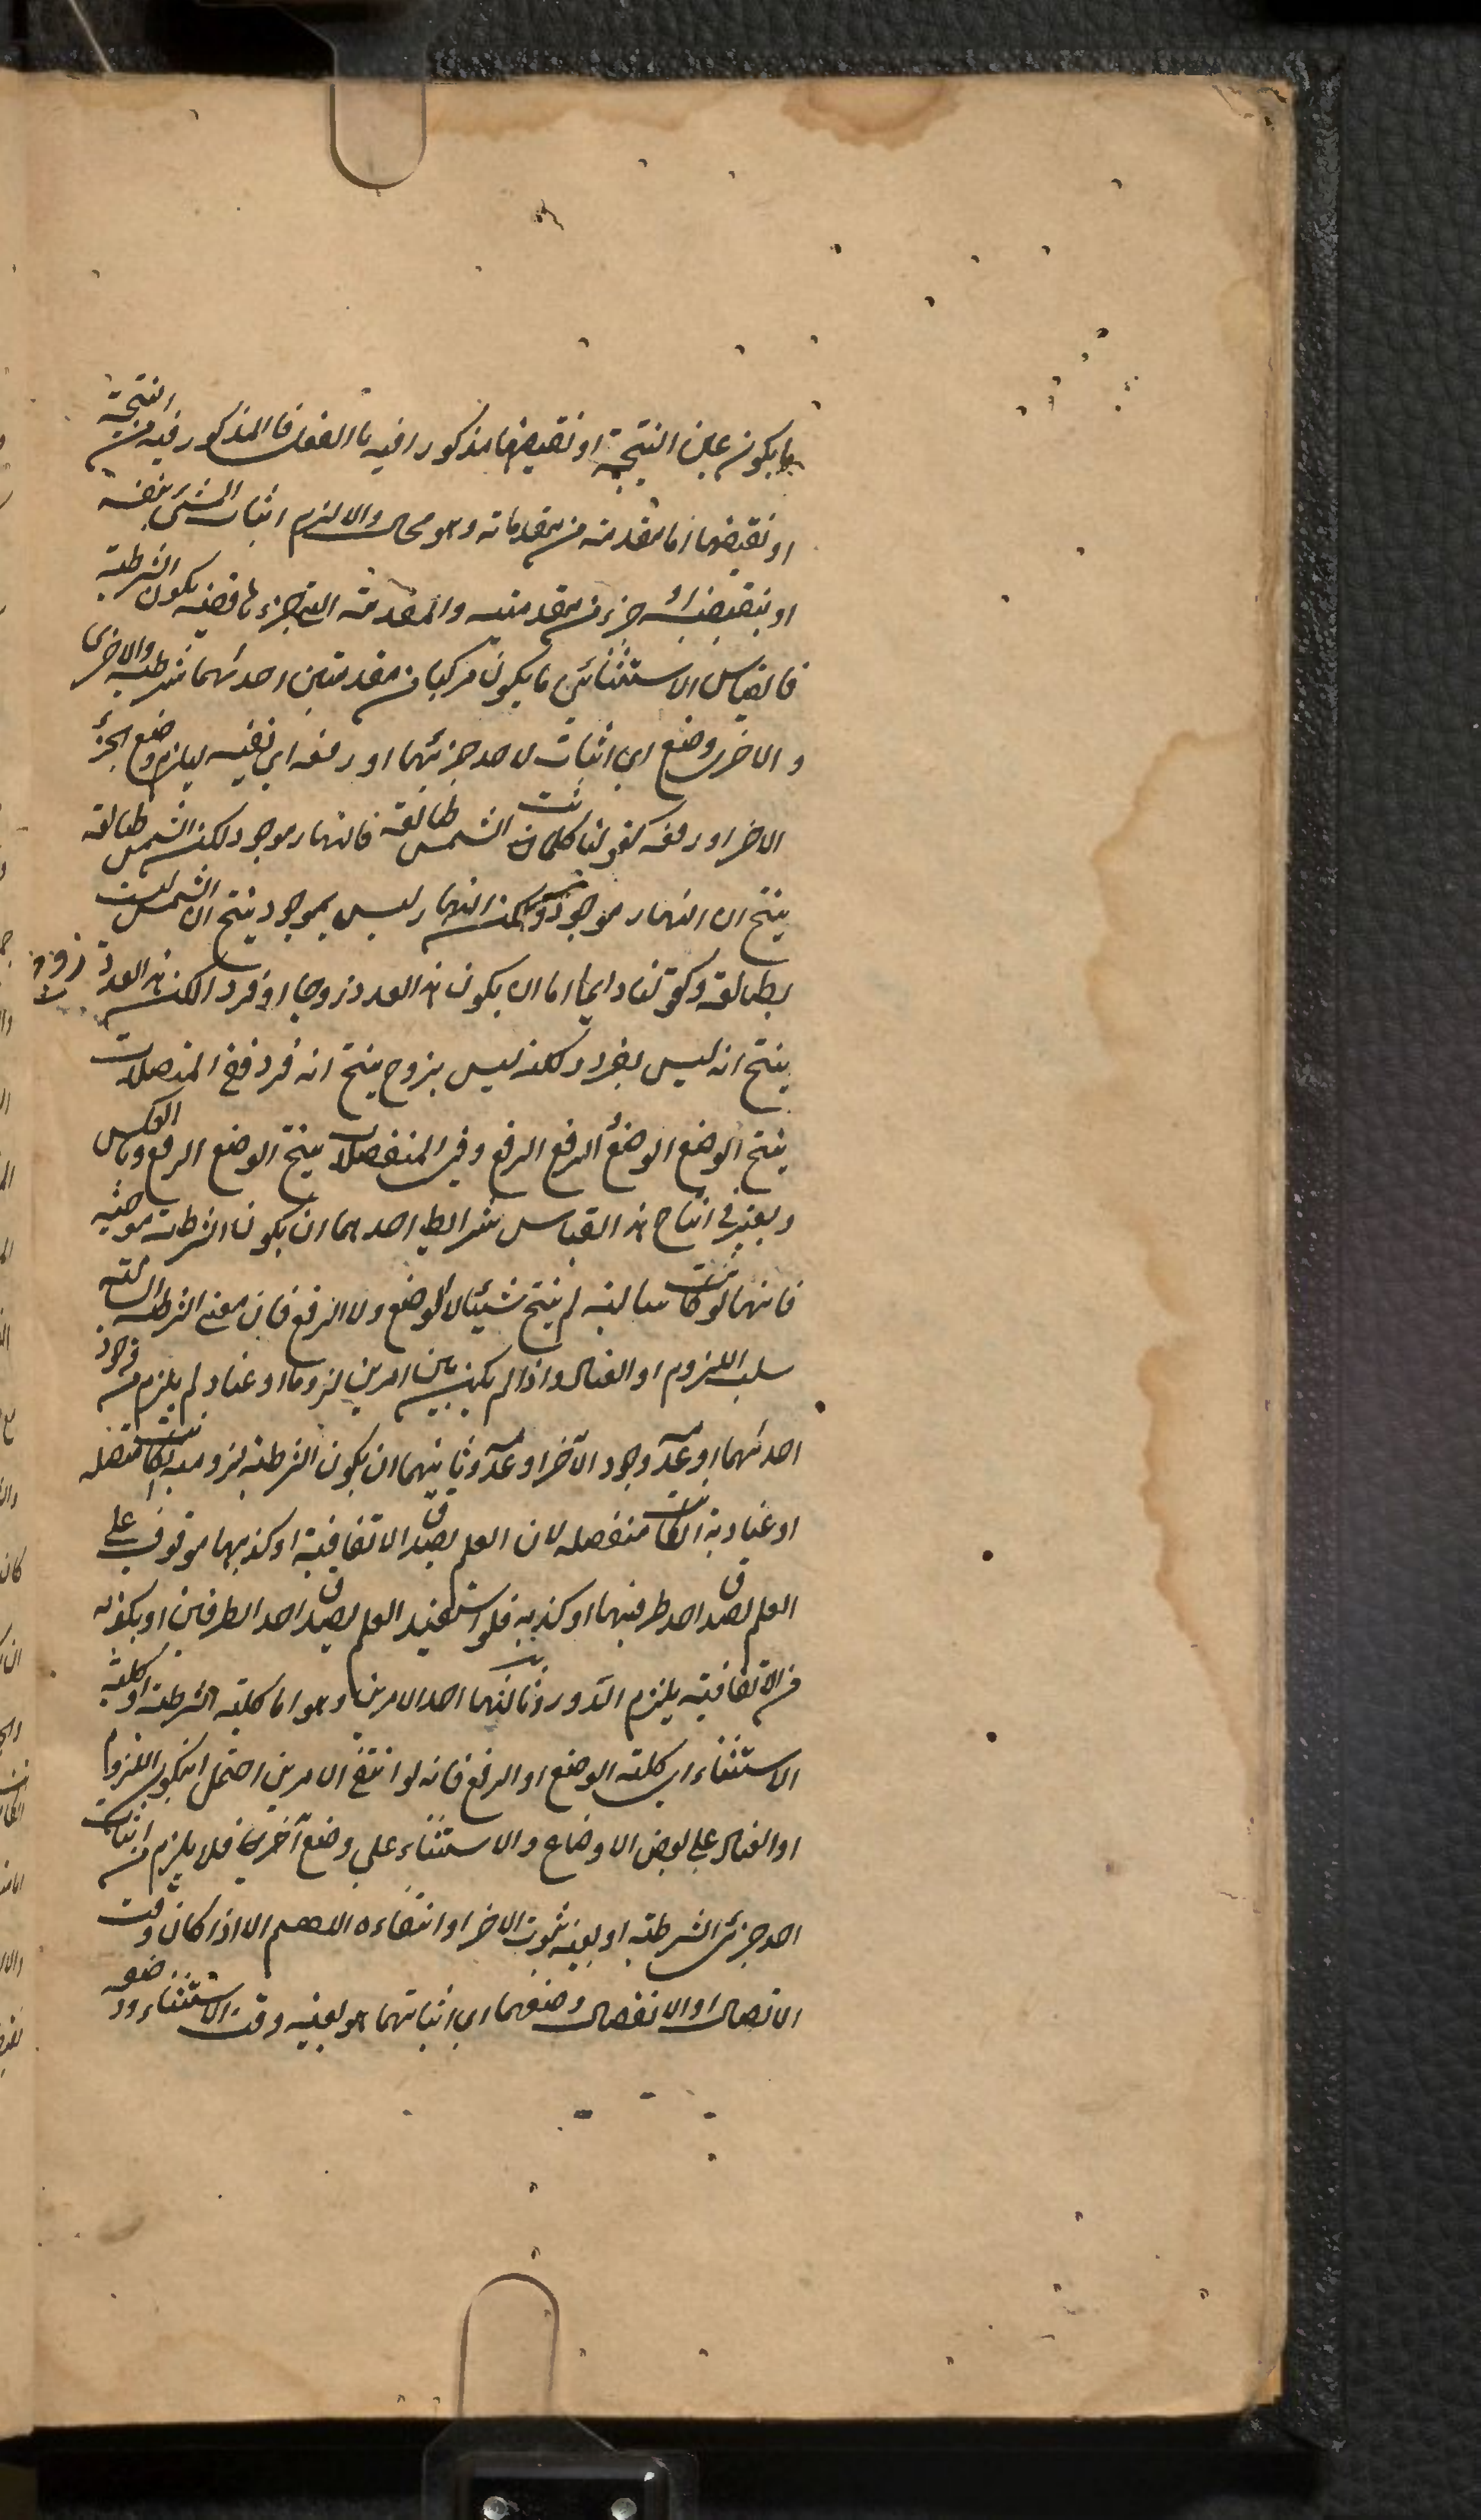 ما يكون عين النتيجة او نقيضها مذكورا فيه بالفعل فالمذكور فيه من النتيجة
او نقيضها اما مقدمة من مقدماته وهو محال والا لزم اثبات الشئ بنفسه
او بنقيضه او جزء من مقدمته والمقدمة التي جزءها قضية يكون الشرطية
فالقياس الاستثنائي ما يكون مركبا من مقدمتين احدىهما شرطية والاخرى
والاخرى وضع اي اثبات لاحد جزئيها او رفعه اي نفيه ليلزم وضع الجزء
الاخر او رفعه كقولنا كلما كانت الشمس طالعة فالنهار موجود لكن الشمس طالعة
ينتج ان النهار موجود ولكن النهار ليس بموجود ينتج ان الشمس ليست
بطالعة وكقولنا دايما اما ان يكون هذا العدد زوجا او فردا لكن هذا العدد زوج
ينتج انه ليس بفرد ولكنه ليس بزوج ينتج انه فرد ففي المتصلات
ينتج الوضع الوضع الرفع الرفع وفي المنفصلات ينتج الوضع الرفع وبالعكس
ويعتبر في انتاج هذا القياس شرائط احدىهما ان يكون الشرطية موجبة
فانها لو كانت سالبة لم ينتج شيئا لا الوضع ولا الرفع فان معنى الشرطية السالبة
سلب اللزوم او العناد واذا لم يكن بين امرين لزوما او عناد لم يلزم من وجود
احدىهما او عدمه وجود الآخر او عدمه وثانيهما ان يكون الشرطية لزومية انكانت متصله
او عنادية انكانت منفصله لان العلم بصدق الاتفاقية او كذبها موقوف على
العلم بصدق احد طرفيها او كذبه فلو استفيد العلم بصدق احد الطرفين او بكذبه
من الاتفاقية يلزم الدور وثالثها احد الامرين وهو اما كلية الشرطية او كلية
الاستثناء اي كلية الوضع او الرفع فانه لو انتفى الامرين احتمل ان يكون اللزوم
او العناد على بعض الاوضاع والاستثناء على وضع آخر فلا يلزم من اثبات
احد جزئي الشرطية او نفيه ثبوت الاخر او انتفاءه اللهم الا اذا كان وقت
الاتصال او الانفصال وضعهما اي اثباتهما هو بعينه وقت الاستثناء ووضعه